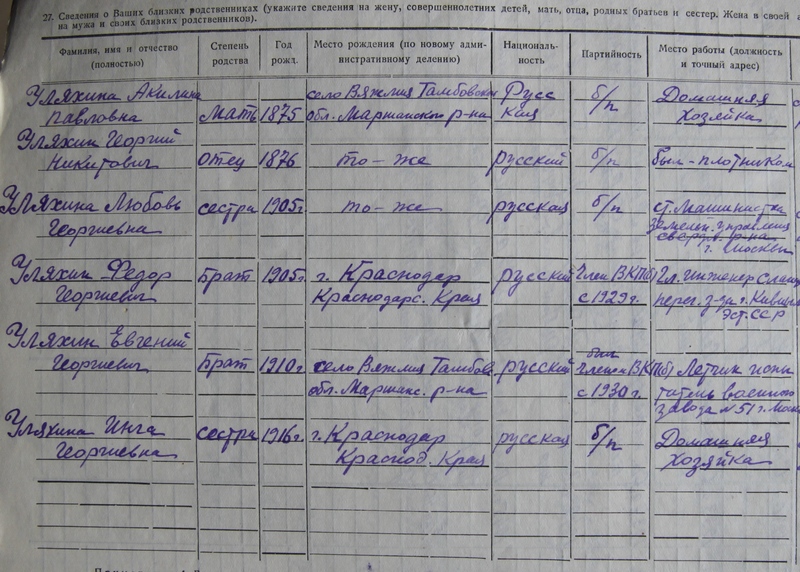 27. Сведения о Ваших близких родственниках (укажите сведения на жену, совершеннолетних детей, мать, отца, родных братьев и сестер. Жена в своей а
на мужа и своих близких родственников).
Фамилия, имя и отчество (полностью)
Степень родства
Год рожд.
Место рождения (по новому адми-
нистративному делению)
Националь-
ность
Партийность
Место работы (должность
и точный адрес)
Уляхина Акилина
Павловна
Мать
1875
село Вяжля Тамбовской
обл. Маршанского р-на
Русс
кая
б/п
Домашняя
Хозяйка
Уляхин Георгий
Никитович
отец
1876
то-же
русский
б/п
был-плотником
Уляхина Любовь
Георгиевна
сестра
1905г
то-же
русская
б/п
ст. Машинистка
земелен. управления
г. Москвы
Уляхин Федор
Георгиевич
Брат
1905г.
г. Краснодар
Краснодарс. Края
русский
Член ВКП(б)
с 1929 г.
Гл. инженер Сланце
перег. з-да г. Кивиыли
Эст. ССР
Уляхин Евгений
Георгиевич
Брат
1910г
село Вяжля Тамбовс
обл. Маршанс. р-на
русский
был
Членом ВКП(б)
с 1930 г.
Летчик испы
татель военного
завода №51 г. Моск
Уляхина Инга
Георгиевна
сестра
1916г.
г. Краснодар
Краснод. Края
русская
б/п
Домашняя
Хозяйка